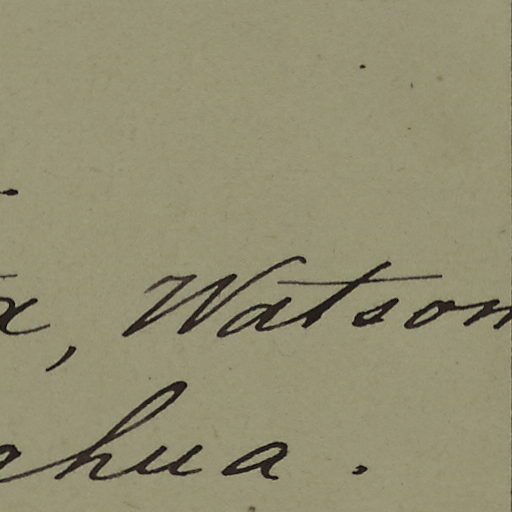 a, Watson
ahua.